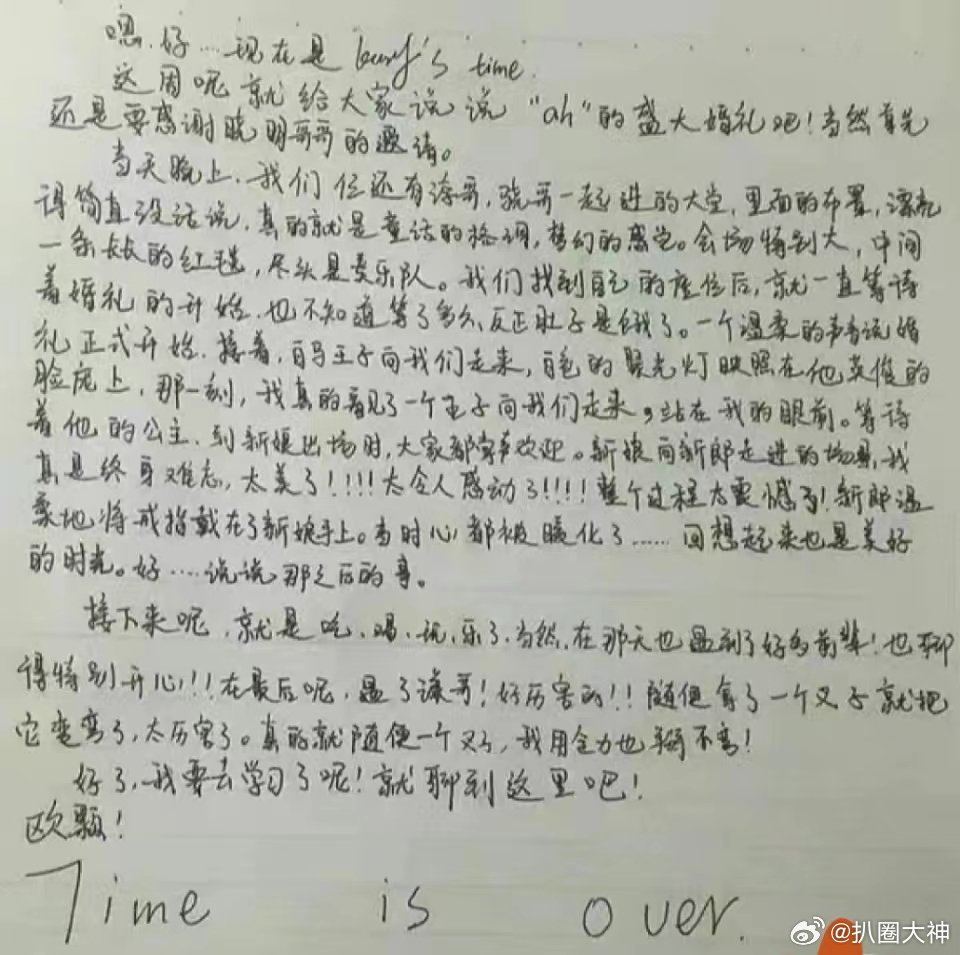 嗯.好……现在是 karry's time.
这周呢就给大家说说“ah”的盛大婚礼吧!当然首先
还是要感谢晓明哥哥的邀请。
当天晚上.我们 位还有涛哥,骁哥一起进的大堂,里面的布置,漂亮
得简直没话说,真的就是童话的格调,梦幻的感觉。会场特别大,中间
一条长长的红毯,尽头是交乐队。我们找到自己的座位后,就一直等待
着婚礼的开始.也不知道等了多久、反正肚子是饿了。一个温柔的声音说婚
礼正式开始.接着,白马王子向我们走来,白色的聚光灯映照在他英俊的
脸庞上,那一刻,我真的看见了一个王子向我们走来,站在我的眼前。等待
着他的公主.到新娘出场时,大家都掌声欢迎。新娘向新郎走进的场景,我
真是终身难忘,太美了!!!!太令人感动了!!!!整个过程太震憾了!新郎温
柔地将戒指戴在了新娘手上。当时心都被暖化了……回想起来也是美好
的时光。好……说说那之后的事。
接下来呢,就是吃、喝、玩、乐了.当然.在那天也遇到了好多前辈!也聊
得特别开心!!!在最后呢,遇了谦哥!好厉害的!!随便拿了一个叉子就把
它变弯了,太厉害了。真的就随便一个叉子,我用全力也掰不弯!
好了,我要去学习了呢!就聊到这里吧!
欧颗!
Time is over.
@扒圈大神